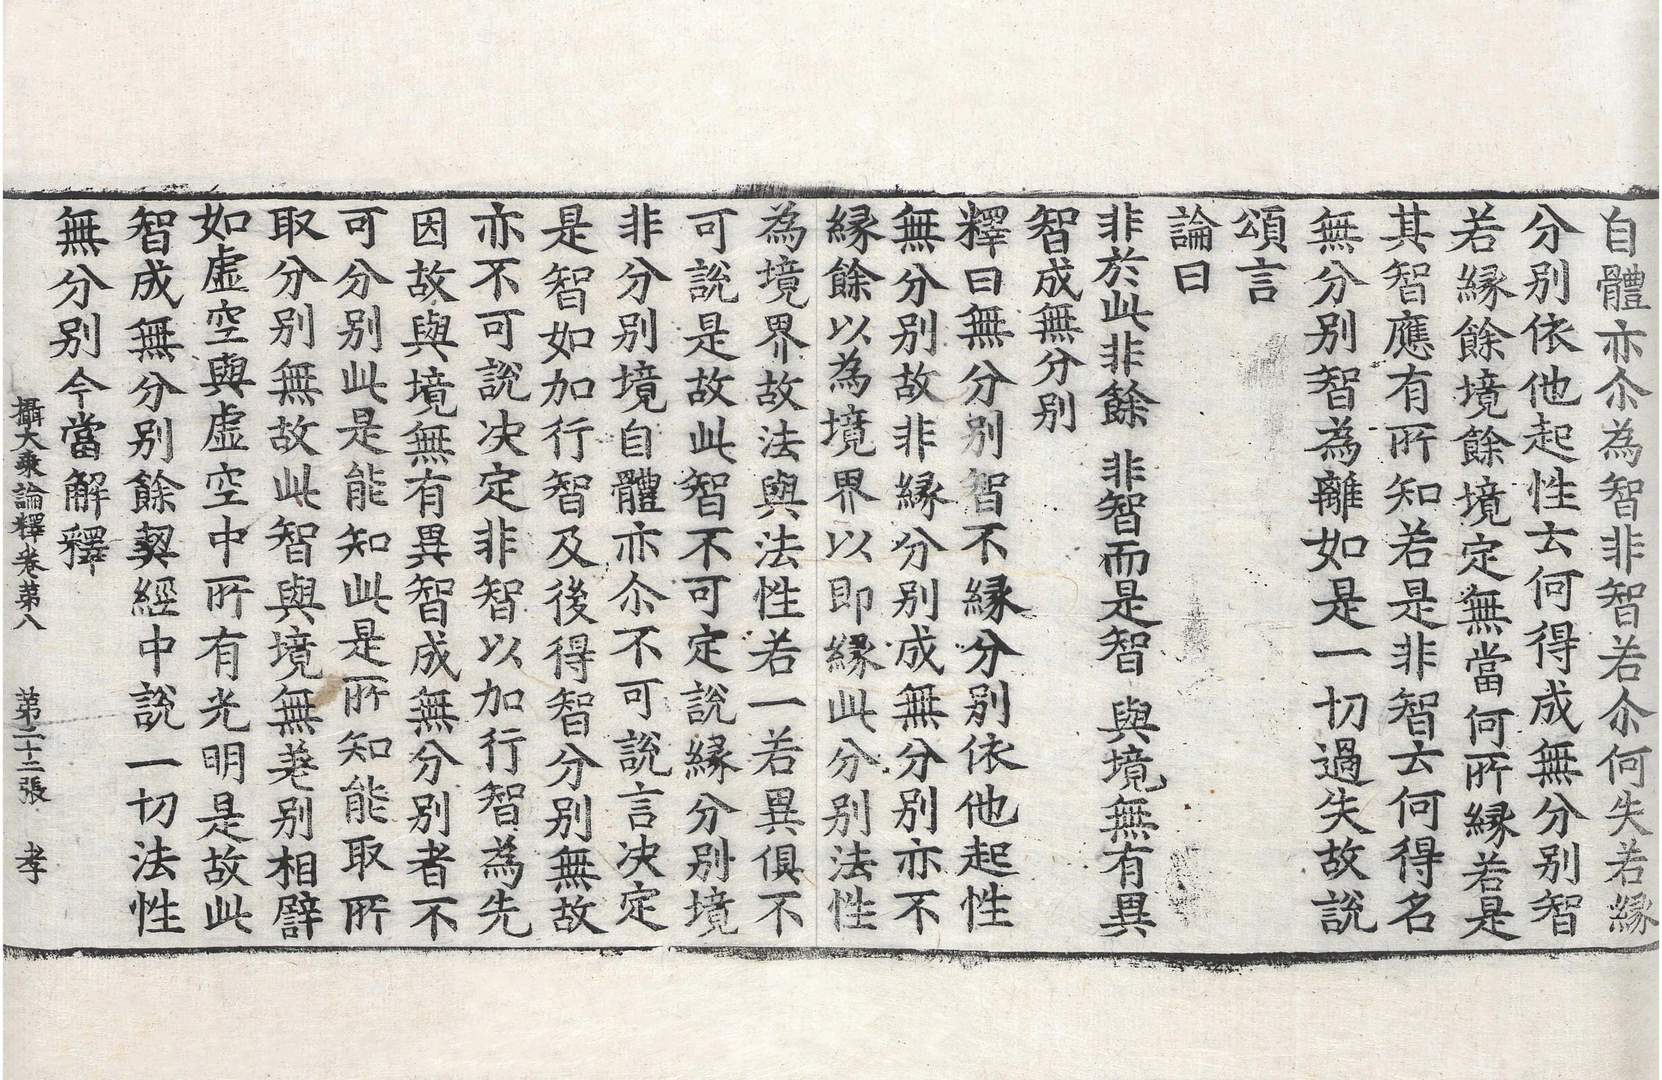 自體亦尒為智非智若尒何失若緣
分别依他起性云何得成無分别智
若緣餘境餘境定無當何所緣若是
其智應有所知若是非智云何得名
無分别智為離如是一切過失故說
頌言
論曰
非於此非餘 非智而是智 與境無有異
智成無分别
釋曰無分别智不緣分别依他起性
無分别故非緣分别成無分别亦不
緣餘以為境界以即緣此分别法性
為境界故法與法性若一若異俱不
可說是故此智不可定說緣分别境
非分别境自體亦尒不可說言决定
是智如加行智及後得智分别無故
亦不可說决定非智以加行智為先
因故與境無有異智成無分别者不
可分别此是能知此是所知能取所
取分别無故此智與境無差别相譬
如虚空與虚空中所有光明是故此
智成無分别餘契經中說一切法性
無分别今當解釋
攝大乘論釋卷第八 第二十二張 孝